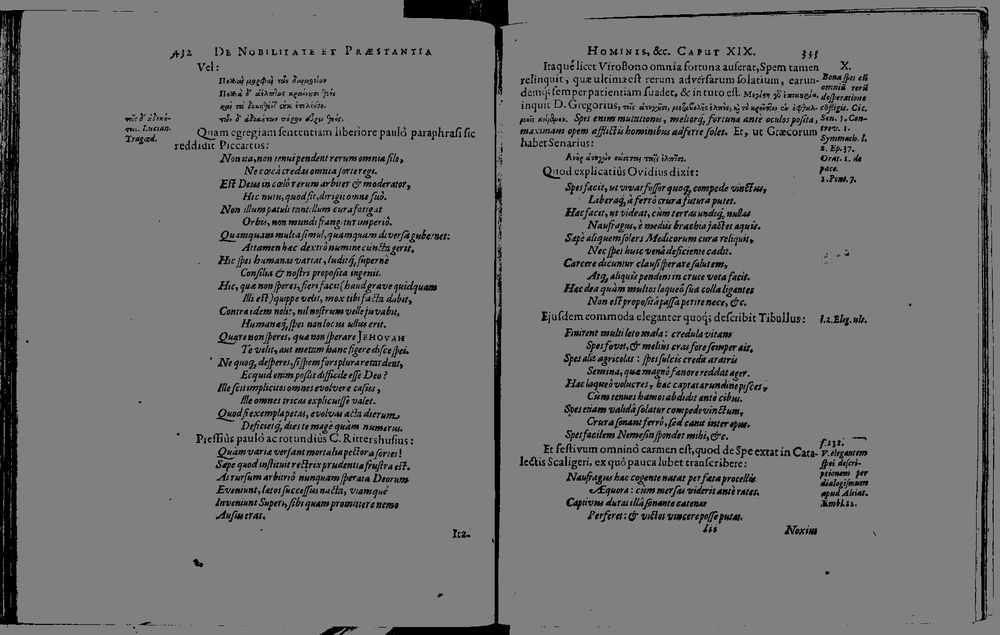 432 DE NOBILITATE ET PRÆSTANTIA
Vel:
Quam egregiam sententiam liberiore pauló paraphrasi sic
reddidit Piccartus:
Non ita, non tenui pendent rerum omnia filo,
Ne cœcâ credas omnia sorte regi.
Est Deus in cœlô rerum arbiter & moderator,
Hic nutu, quod fit, dirigit omne suô.
Non illum patuli tantillum cura fatigat
Orbis, non mundi frangitur imperiô.
Quamquam multa simul, quamquam diversa gubernet:
Attamen hac dextrô numine cuncta gerit.
Hic spes humanas variat, luditq; supernè
Consilia & nostri proposita ingenii.
Hic, quæ non speres, fieri facit (haud grave quidquam
Illi est) quippe velit, mox tibi facta dabit,
Contra idem nolit, nil nostrum velle juvabit,
Humanæq; spei non locus ullus erit.
Quare non speres, qua non sperare JEHOVAH
Te velit, aut metam hanc figere disce spei.
Ne quoq; desperes, si spem fors plura retardent,
Ecquid enim possit difficile esse Deo?
Ille scit implicitos omnes evolvere casus,
Ille omnes tricas explicuisse valet.
Quod si exempla petas, evolvas acta dierum,
Deficietq; dies te magè quàm numerus.
Pressiùs pauló ac rotundiùs C. Rittershusius:
Quàm varia versant mortalia pectora sortes!
Sæpe quod instituit rectrix prudentia frustra est.
At rursum arbitriô nunquam sperata Deorum
Eveniunt, lætos successus nacta, viamque
Inveniunt Superi, sibi quam promittere nemo
Ausus erat.
Ita-
Lucian.
Tragœd.
HOMINIS, &c. CAPUT XIX.
Itaque licet Viro Bono omnia fortuna auferat, Spem tamen
relinquit, quæ ultima est rerum adversarum solatium, earun-
demq; semper patientiam suadet, & in tuto est.
inquit D. Gregorius,
Spes enim mutationis, meliorq; fortuna ante oculos posita,
maximam opem afflictis hominibus adferre solet. Et, ut Græcorum
habet Senarius:
Quod explicatiùs Ovidius dixit:
Spes facit, ut vivat fossor quoq; compede vinctus,
Liberaq; à ferrô crura futura putet.
Hæc facit, ut videat, cùm terras undiq; nullas
Naufragus, è mediis brachia jactet aquis.
Sæpè aliquem solers Medicorum cura reliquit,
Nec spes huic venâ deficiente cadit.
Carcere dicuntur clausi sperare salutem,
Atq; aliquis pendens in cruce vota facit.
Hæc dea quàm multos laqueô sua colla ligantes
Non est proposità passa perire nece, &c.
Ejusdem commoda eleganter quoq; describit Tibullus:
Finirent multi leto mala: credula vitam
Spes fovet, & melius cras fore semper ait.
Spes alit agricolas: spes sulcis credit aratris
Semina, quæ magnô fænore reddat ager.
Hæc laqueô volucres, hæc captat arundine pisces,
Cùm tenues hamos abdidit antè cibus.
Spes etiam validâ solatur compede vinctum,
Crura sonant ferrô, sed canit inter opus.
Spes facilem Nemesin spondet mihi, &c.
Et festivum omninò carmen est, quod de Spe extat in Cata-
lectis Scaligeri, ex quô pauca lubet transcribere:
Naufragus hac cogente natat per freta procellis.
Æquora: cùm mersas viderit antè rates.
Captivus duras illâ sonante catenas
Perferet: & victos vincere posse putat.
Iii
Noxius
X.
Bona spes est
omnium rerũ
desperatione
Cic.
Sen. 5. Con-
trov. 1.
Symmach. l.
2. Ep. 37.
Orat. 1. de
pace.
1. Pont. 7.
l. 2. Eleg. ult.
f. 232.
V. elegantem
spei descri-
ptionem per
dialogismum
apud Alciat.
Embl. 12.